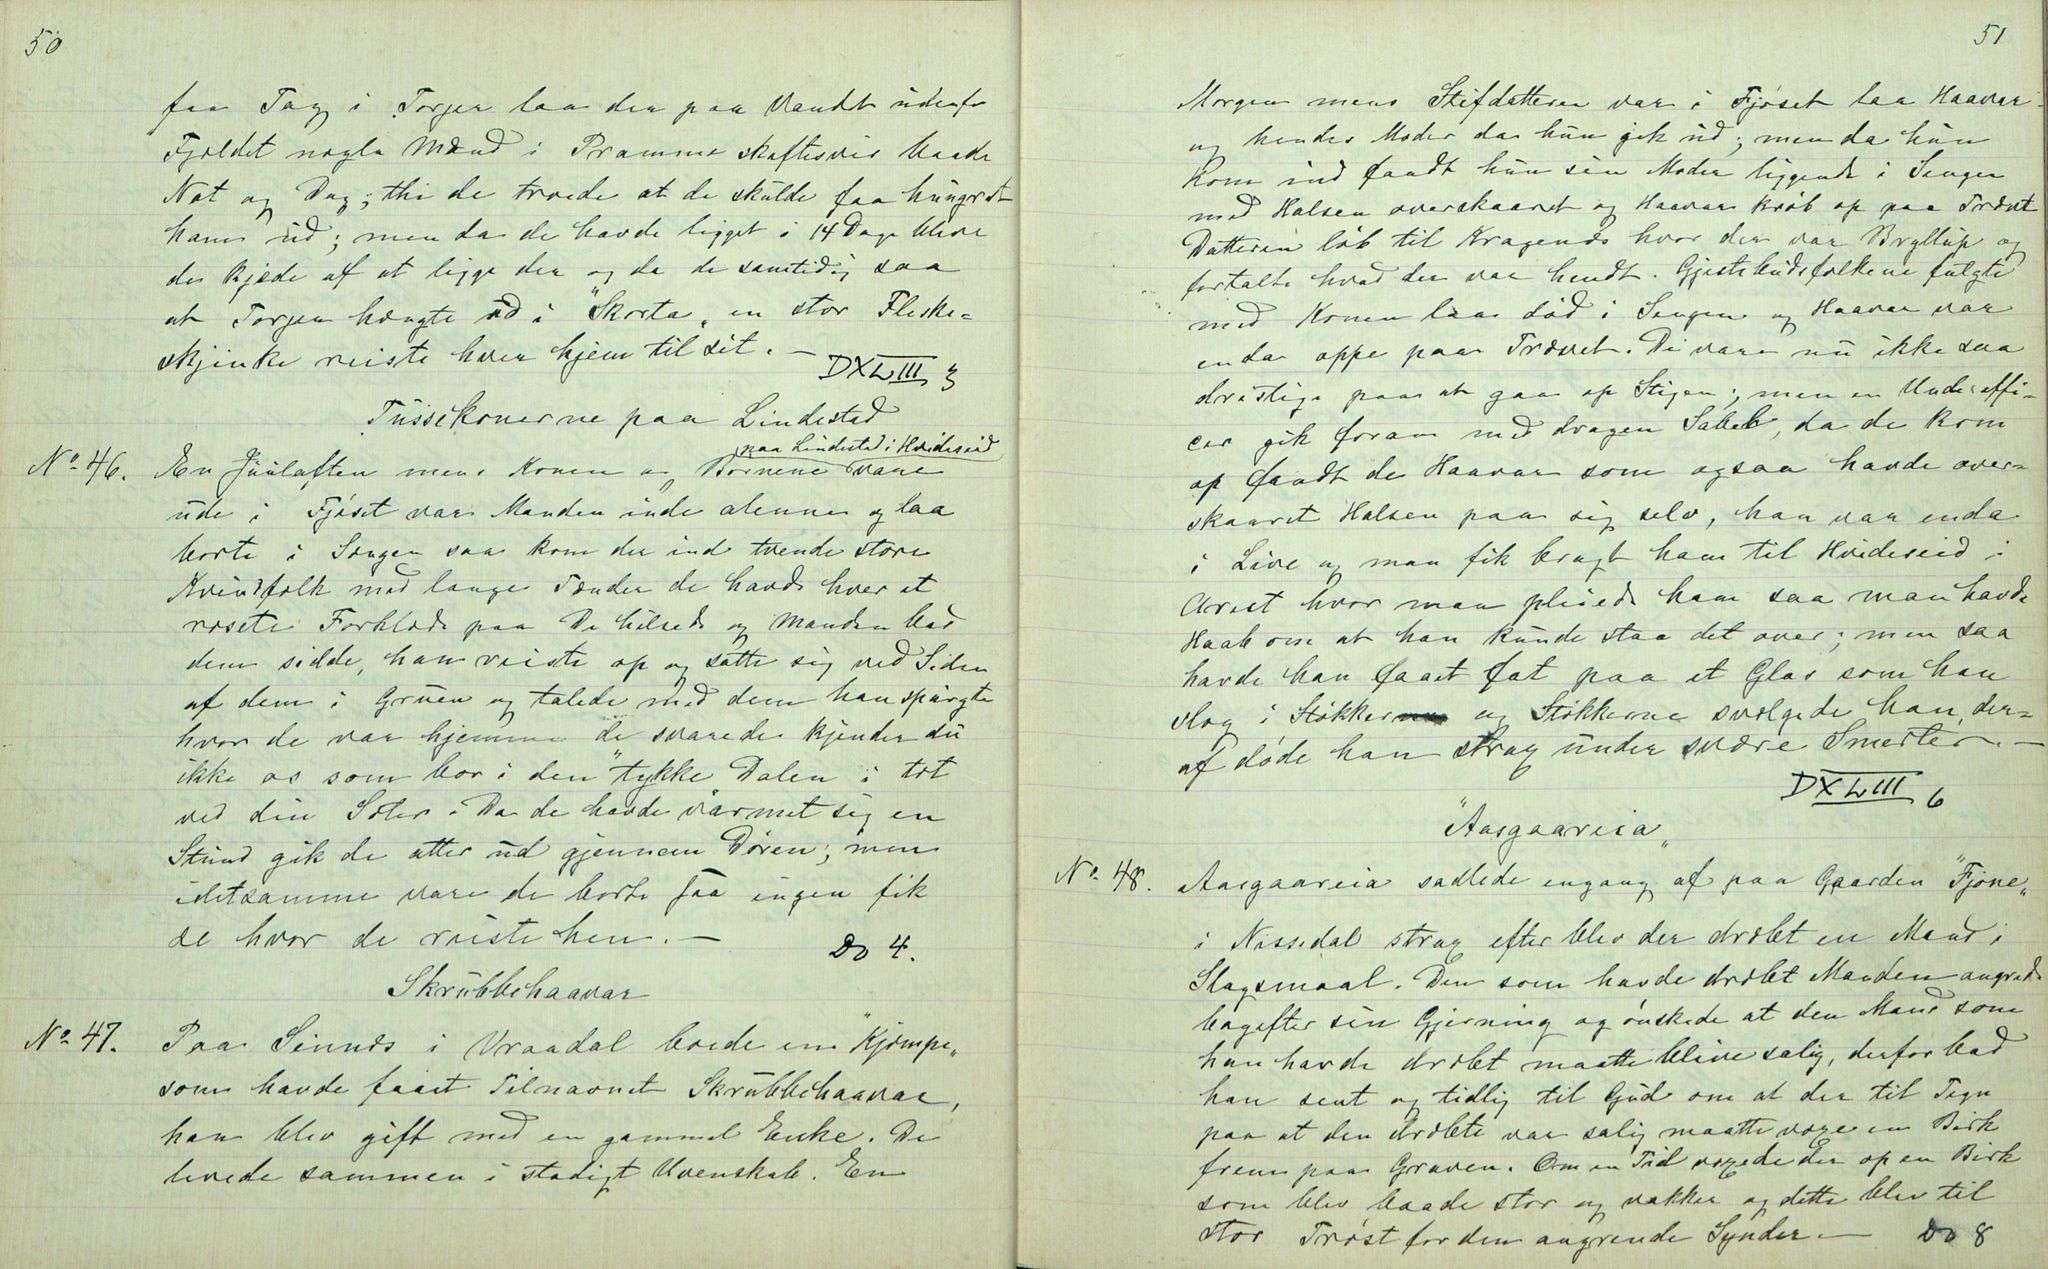 50
faa Tag i Torjer laa der paa Vandt udenfor
Fjeldet nogle Mænd i Pramme skiftesvis baade
Nat og Dag; thi de troede at de skulde faa hungret
ham ud; men da de havde ligget i 14 Dage bleve
de kjede af at ligge der og da de samtidig saa
at Torjer hængte ud i "Skorta" en stor Fleske=
skjinke reiste hver hjem til sit. —
DXLIII 3
Tussekonerne paa Lindestad
paa Lindestad i Hvideseid
No 46. En Juulaften mens Konen og Børnene vare
ude i Fjøset var Manden inde alenne og laa
borte i Sengen saa kom der ind tvende store
Kvindfolk med lange Tænder de havde hver et
roset Forklæde paa De hilsede og Manden bad
dem sidde, han reiste op og satte sig ved Siden
af dem i Gruen og talede med dem han spurgte
hvor de var hjemme de svarede kjender du
ikke os som bor i den "tykke Dalen i tæt
ved din Sæter. Da de havde varmet sig en
Stund gik de atter ud gjennem Døren; men
idetsamme vare de borte saa ingen fik
se hvor de reiste hen. —
Do 4.
Skrubbehaavar
No 47. Paa Sinnes i Vraadal boede en "Kjæmpe"
som havde faaet Tilnavnet Skrubbehaavar,
han blev gift med en gammel Enke. De
levede sammen i stadigt Uvenskab. En
51
Morgen mens Stifdatteren var i Fjøset laa Haavar
og hendes Moder da hun gik ud; men da hun
kom ind fandt hun sin Moder liggende i Sengen
med Halsen overskaaret og Haavar krøb op paa Trævet
Datteren løb til Kragenes hvor der var Bryllup og
fortalte hvad der var hendt. Gjestebudsfolkene fulgte
med Konen laa død i Sengen og Haavar var
enda oppe paa Trævet. De vare nu ikke saa
dristige paa at gaa op Stigen; men en Underoffi-
cer gik foran med dragen Sabel, da de kom
op fandt de Haavar som ogsaa havde over=
skaaret Halsen paa sig selv, han var enda
i Live og man fik bragt ham til Hvideseid i
Arest hvor man pleiede ham saa man havde
Haab om at han kunde staa det over; men saa
havde han faaet fat paa et Glas som han
slog i Støkker og Støkkerne svælgede han, der=
af døde han strax under svære Smerter. —
DXLIII 6
"Aasgaareia"
No 48. Aasgaareia sadlede engang af paa Gaarden "Fjone"
i Nissedal strax efter blev der dræbt en Mand i
Slagsmaal. Den som havde dræbt Manden angrede
bagefter sin Gjerning og ønskede at den Mand som
han havde dræbt maatte blive salig, derfor bad
han sent og tidlig til Gud om at der til Tegn
paa at den dræbte var salig maatte voxe en Birk
frem paa Graven. Om en Tid voxede der op en Birk
som blev baade stor og vakker og dette blev til
stor Trøst for den angrende Synder. — Do 8